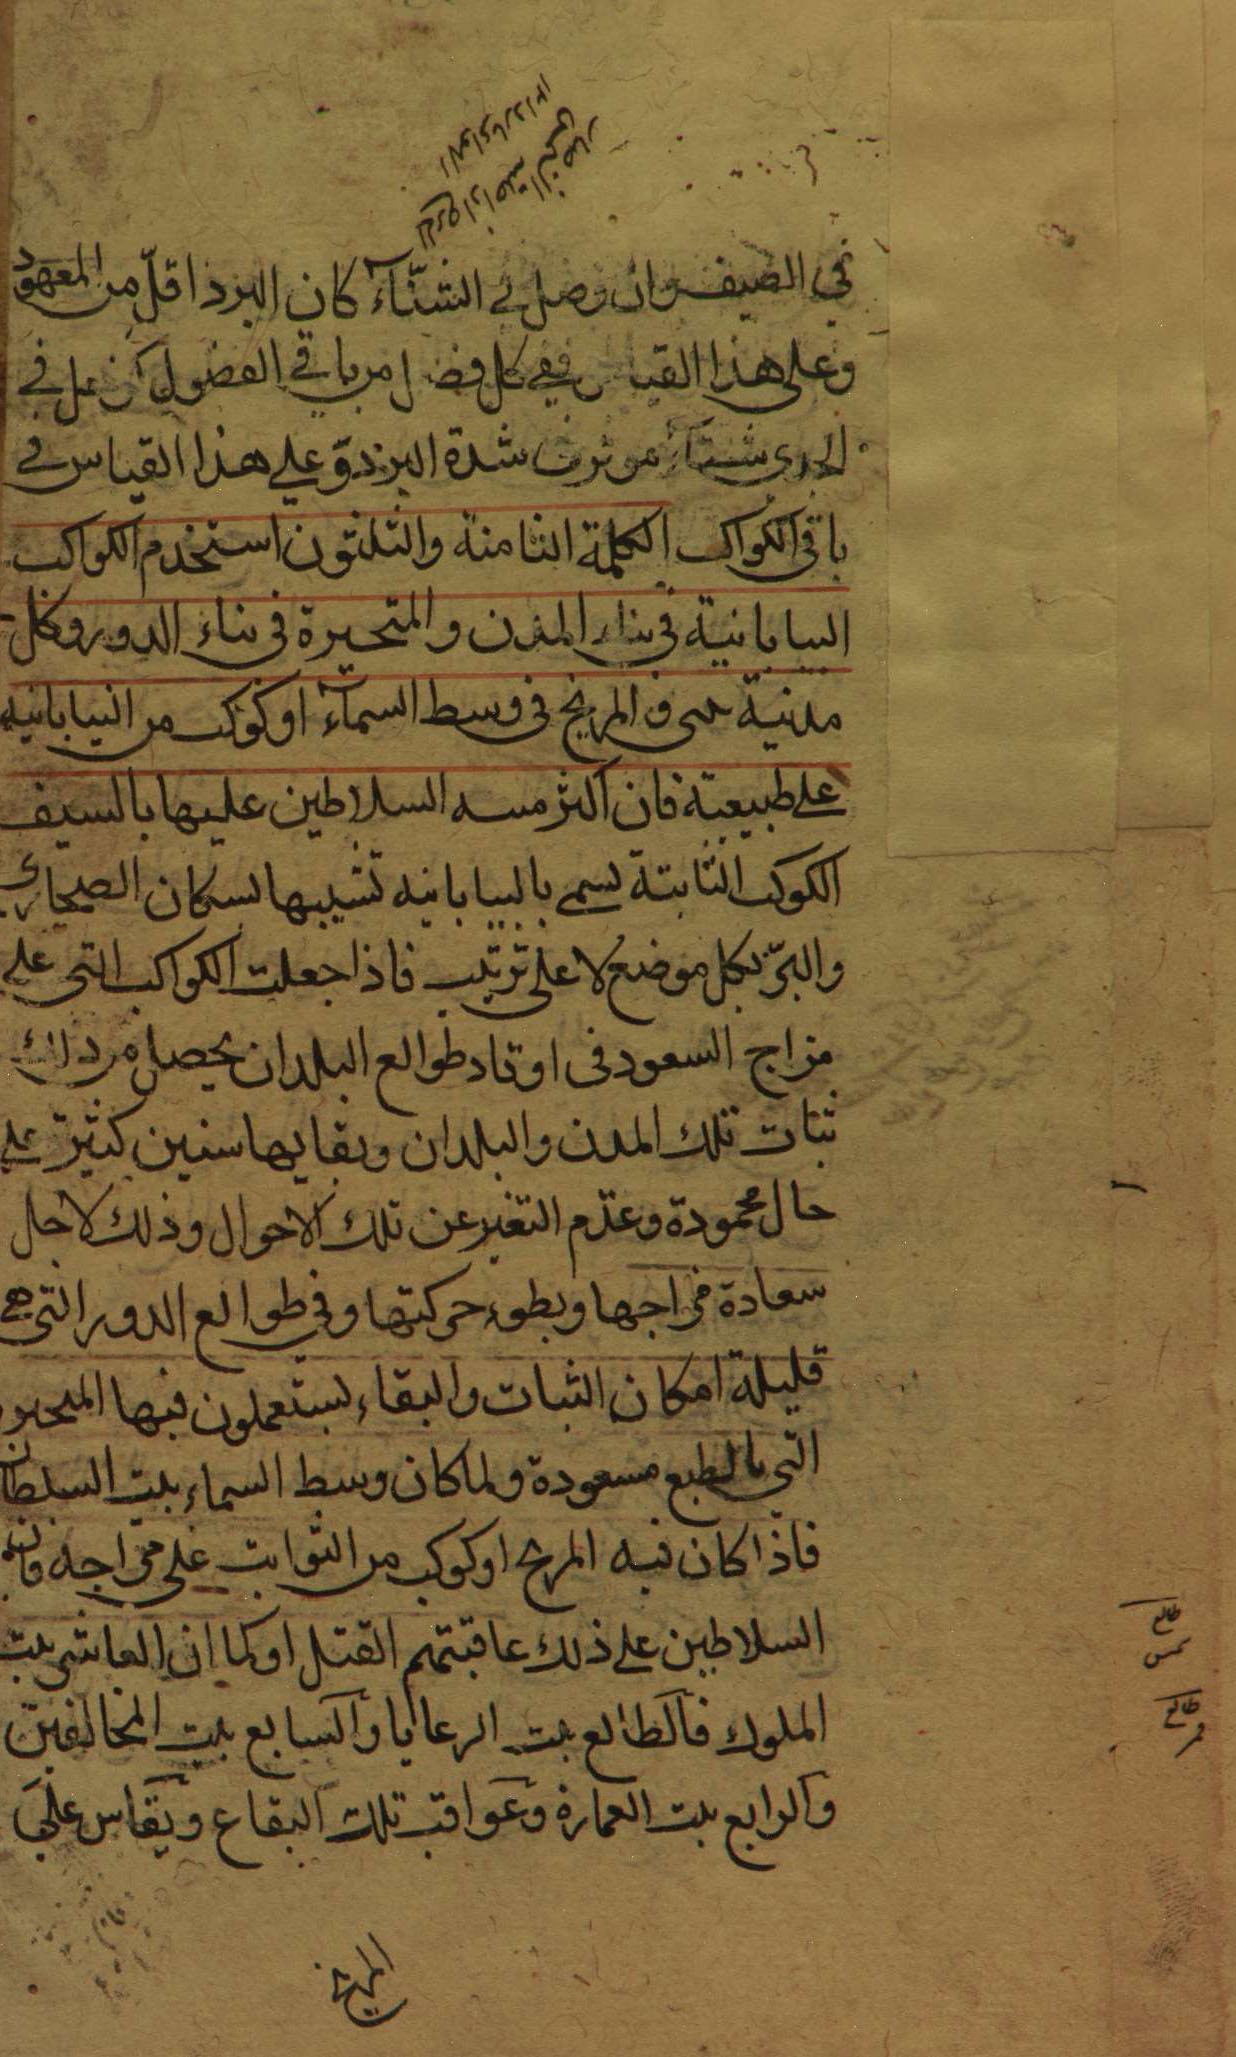 في الصيف وان وصل في الشتاء كان البرد اقل من المعهود
وعلى هذا القياس ففي كل فصل من باقي الفصول كزحل في
الجدي شتاء شدة البرد وعلى هذا القياس في
باقي الكواكب الكلمة الثامنة والثلثون استخدم الكواكب
البيابانية في بناء المدن والمتحيرة في بناء الدور وكل
مدنية والمريخ في وسط السماء او كوكب من البيابانيه
على طبيعية فان اكثر السلاطين عليها بالسيف
الكوكب الثابتة تسمى بالبيابانيه تشبيها بسكان الصحارى
والبر بكل موضع لا على ترتيب فاذا جعلت الكواكب التي على
مزاج السعود في اوتاد طوالع البلدان يحصل من ذلك
ثبات تلك المدن والبلدان وبقايها سنين كثيرة على
حال محمودة وعدم التغير عن تلك الاحوال وذلك لاجل
سعادة مزاجها وبطوء حركتها وفي طوالع الدور التي هي
قليلة امكان الثبات والبقاء يستعملون فيها المتحيرة
التي بالطبع مسعودة ولما كان وسط السماء بيت السلطان
فاذا كان فيه المريخ او كوكب من الثوابت على مزاجه فان
السلاطين على ذلك عاقبتهم القتل او كما ان العاشر بيت
الملوك فالطالع بيت الرعايا والسابع بيت المخالفين
والرابع بيت العمارة وعواقب تلك البقاع ويقاس على
المريخ
طالع
شمس
طالع